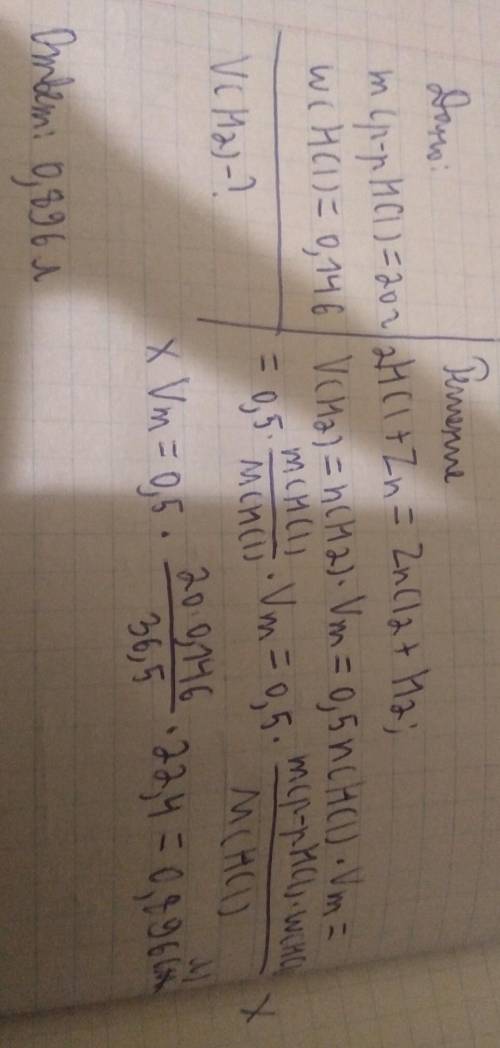 Дано:
m(р-р HCl) = 20г
w(HCl) = 0,146
V(H2) - ?
Решение
2HCl + Zn = ZnCl2 + H2;
V(H2) = n(H2) · Vm = 0,5 n(HCl) · Vm =
= 0,5 · m(HCl) / M(HCl) · Vm = 0,5 · m(р-р HCl) · w(HCl) / M(HCl) ×
× Vm = 0,5 · 20·0,146 / 36,5 · 22,4 = 0,896 (л)
Ответ: 0,896 л